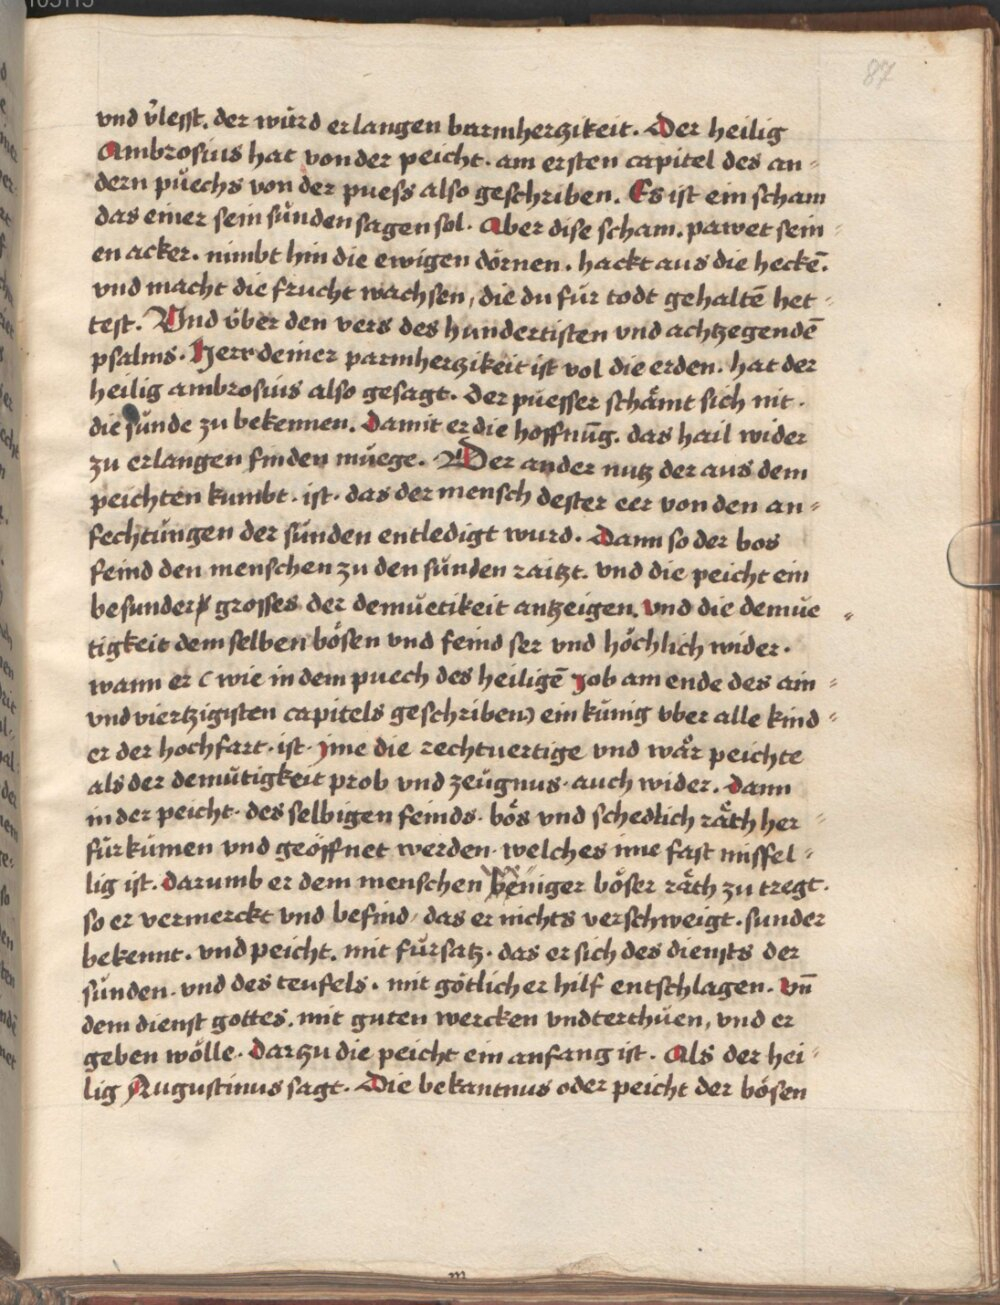 103113
87
vnd v̉lesst. der wůrd erlangen barmhertzikeit. Der heilig
Ambrosius hat von der peicht. am ersten capitel des an-
dern půechs von der puess also geschriben. Es ist ein scham
das einer sein sůnden sagen sol. Aber dise scham. pawet sein-
en acker. nimbt hin die ewigen dörnen. hackt aus die heckē.
vnd macht die frucht wachsen, die du fůr todt gehaltē het-
test. Vnd ůber den vers des hundertisten vnd achtzegendē
psalms. Herr deiner parmhertzikeit ist vol die erden. hat der
heilig ambrosius also gesagt. Der půesser schämt sich nit.
die sůnde zu bekennen. Damit er die hoffnūg. das hail wider
zu erlangen finden můege. Der ander nutz der aus dem
peichten kumbt. ist. das der mensch dester eer von den an-
fechtůngen der sůnden entledigt wurd. Dann so der bos
feind den menschen zu den sůnden raitzt. vnd die peicht ein
besunder grosses der demůetikeit antzeigen. vnd die demůe-
tigkeit dem selben bösen vnd feind ser vnd höchlich wider.
wann er (wie in dem puech des heiligē Job am ende des ain-
vnd viertzigisten capitels geschriben) ein kůnig vber alle kind-
er der hochfart. ist. jme die rechtuertige vnd wår peichte
als der demůtigkeit prob vnd zeůgnus. auch wider. Dann
in der peicht. des selbigen feinds. bös vnd schedlich räth her-
fůrkůmen vnd geöffnet werden. welches ime fast missfel-
lig ist. Darumb er dem menschen weniger böser räth zu tregt.
so er vermerckt vnd befind, das er nichts verschweigt. sunder
bekennt. vnd peicht. mit fůrsatz. das er sich des diensts der
sůnden. vnd des teufels. mit götlicher hilf entschlagen. vn̄
dem dienst gottes. mit guten wercken vndterthůen, vnd er
geben wölle. Dartzu die peicht ein anfang ist. Als der hei-
lig Augustinus sagt. Die bekantnus oder peicht der bösen
m